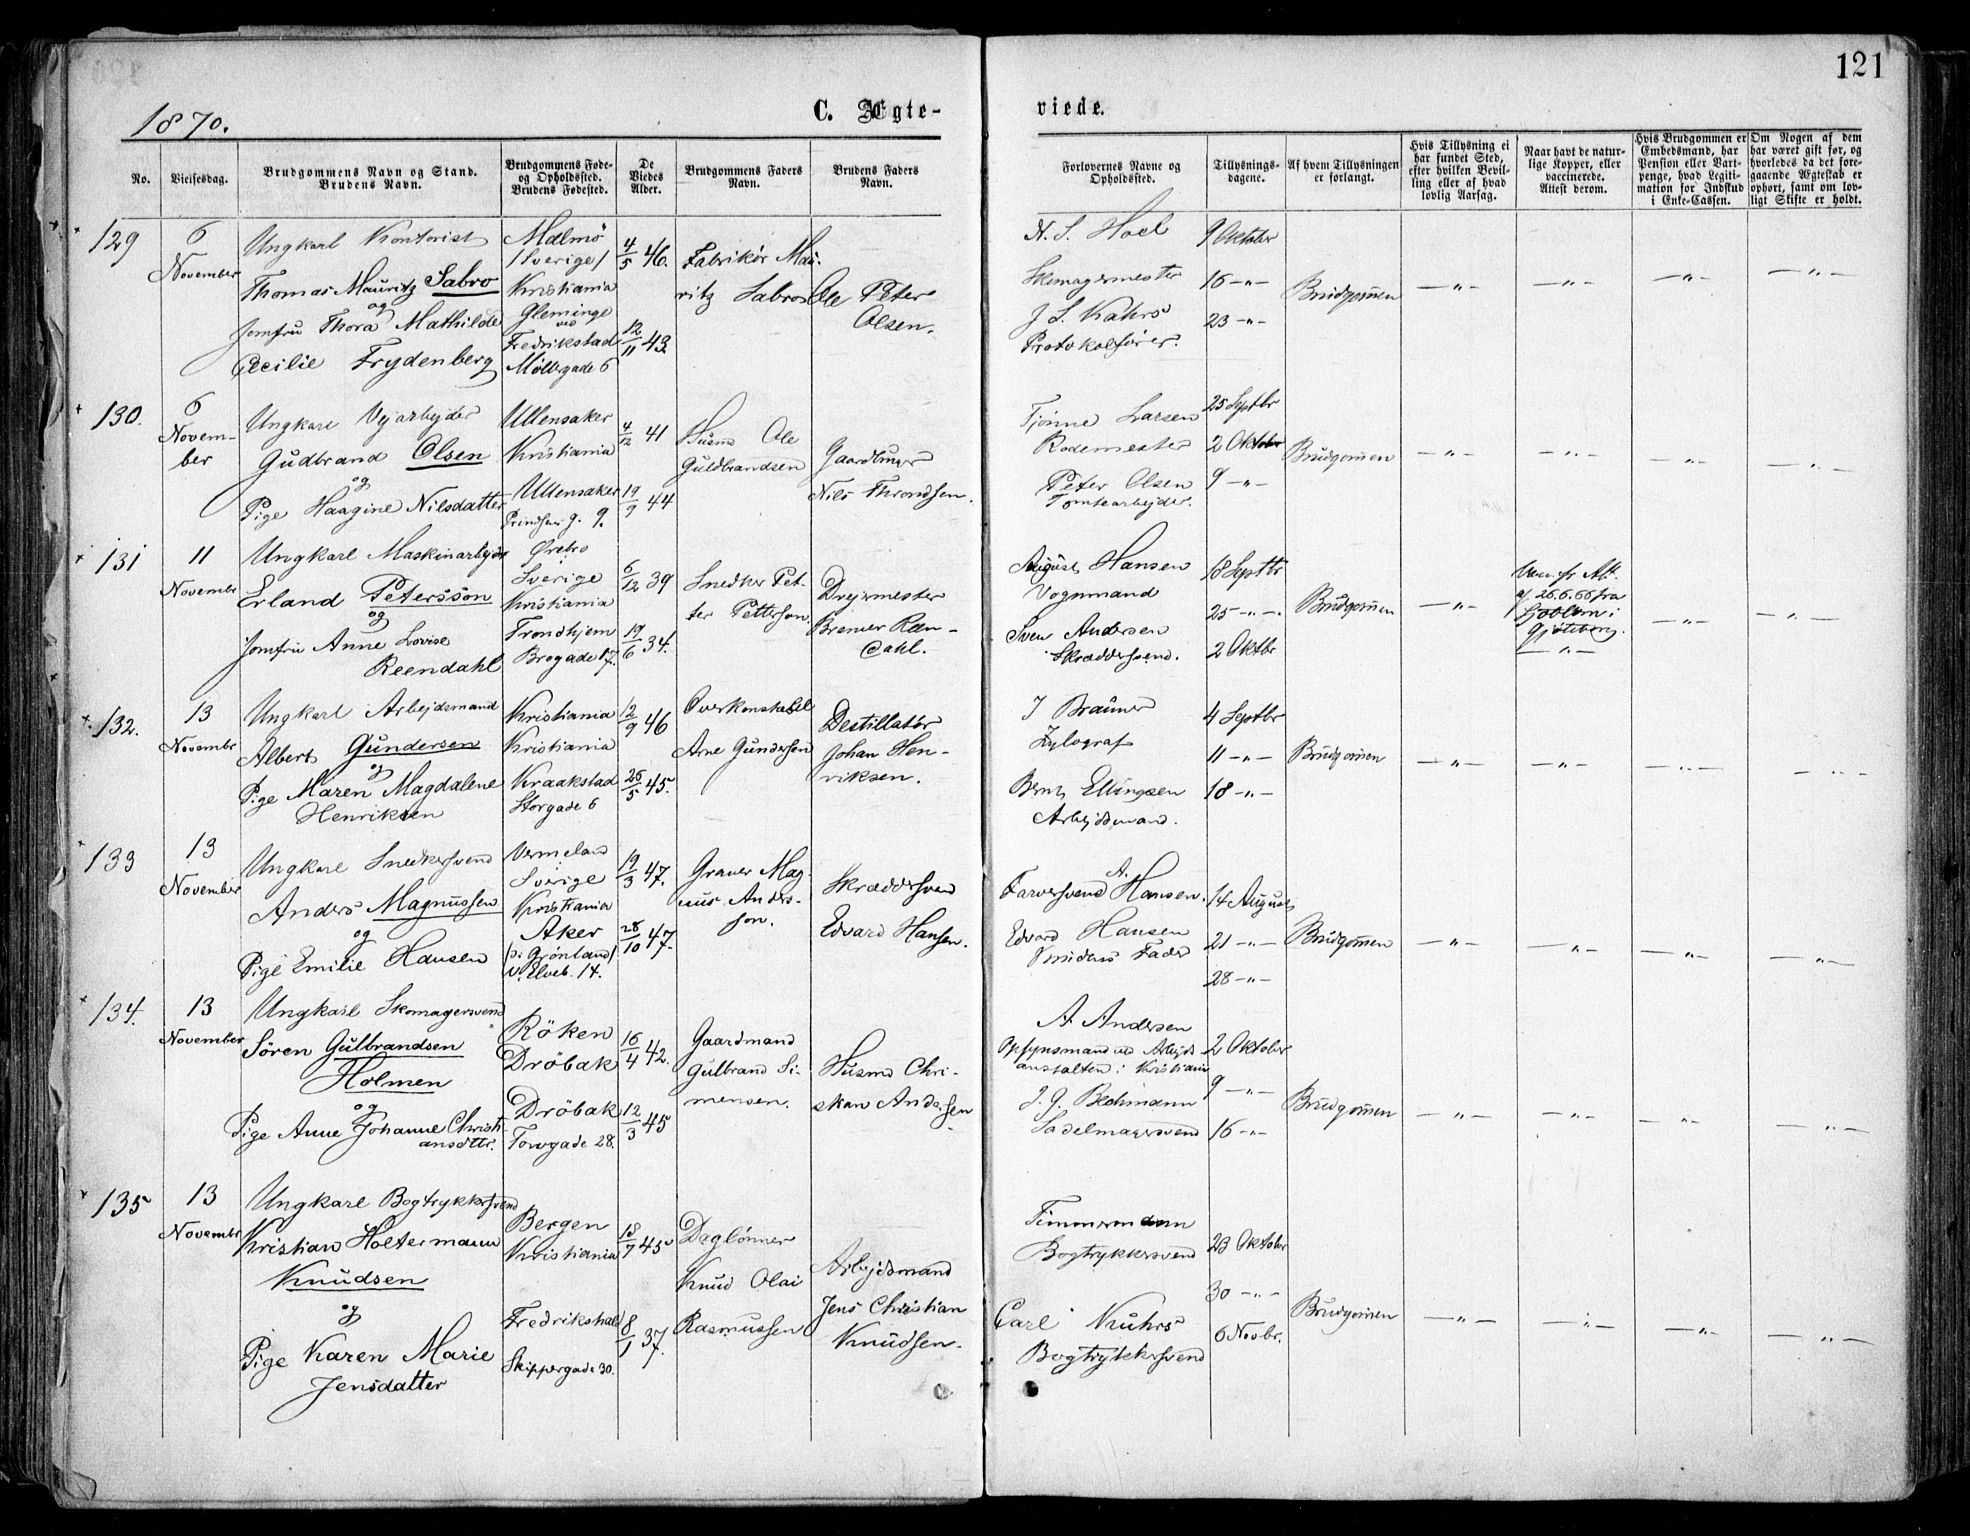 121
1870.
C. Ægte-
viede.
No.
Vielsesdag.
Brudgommens Navn og Stand.
Brudens Navn.
Brudgommens Føde-
og Opholdssted.
Brudens Fødested.
De
Viedes
Alder.
Brudgommens Faders
Navn.
Brudens Faders
Navn.
Forlovernes Navne og
Opholdssted.
Tillysnings-
dagene.
Af hvem Tillysningen
er forlangt.
Hvis Tillysning ei
har fundet Sted,
efter hvilken Bevil-
ling eller af hvad
lovlig Aarsag.
Naar havt de natur-
lige Kopper, eller
vaccinerede.
Attest derom.
Hvis Brudgommen er
Embedsmand, har
Pension eller Vart-
penge, hvad Legiti-
mation for Indskud
i Enke-Cassen.
Om Nogen af dem
har været gift før, og
hvorledes da det fore-
gaaende Ægteskab er
ophørt, samt om lov-
ligt Skifte er holdt.
129
6
November
Ungkarl Kontorist
Thomas Mauritz Sabro
og
Jomfru Thora Mathilde
Cecilie Frydenberg
Malmö
/Sverige/
Kristiania
Gleminge
ved
Fredrikstad
Möllergade 6
4/5 46.
12/11 43.
Fabrikör Mau-
ritz Sabro
Ole Peter
Olsen.
N. S. Hoel
Skomagermester
J. S. Kahrs
Protokolfører.
9 Oktober
16 -"-
23 -"-
Brudgommen
-"- -"- -"- -"-
130.
6
Novem-
ber
Ungkarl Vejarbejder
Gudbrand Olsen
og
Pige Haagine Nilsdatter
Ullensaker
Kristiania
Ullensaker
Prindsens g. 9.
4/12 41
19/9 44
Husmd Ole
Guldbrandsen
Gaardbruger
Nils Throndsen.
Tjönne Larsen
Rodemester
Peter Olsen
Tomtearbejder.
25 Septbr
2 Oktober
9 -"-
Brudgommen
-"- -"- -"- -"-
131
11
Novembr
Ungkarl Maskinarbejder
Erland Petersson
og
Jomfru Anne Lovise
Reendahl
Örebro
Sverige
Kristiania
Trondhjem
Brogade 17.
6/12 39
19/6 34.
Snedker Pet-
ter Petterson
Drejermester
Bremer Reen-
dahl.
August Hansen
Vognmand
Sven Andersen
Skræddersvend.
18 Septbr
25 -"-
2 Oktbr
Brudgommen
-"-
af 26.6.66 fra
Gjöteborg.
-"- -"- -"-
132.
13
Novembr
Ungkarl Arbejdsmand
Albert Gundersen
og
Pige Maren Magdalene
Henriksen
Kristiania
Kristiania
Kraakstad
Storgade 6
12/9 46
26/5 45.
Overkonstabel
Arne Gundersen
Destillatör
Johan Hen-
riksen.
J Brauner
Xylograf
Bernt Ellingsen
Arbejdsmand.
4 Septbr
11 -"-
18 -"-
Brudgommen
-"- -"- -"- -"-
133
13
November
Ungkarl Snedkersvend
Anders Magnussen
og
Pige Emilie Hansen
Vermeland
Sverige
Kristiania
Aker
/pi Grönland/
V. Elveb. 14.
19/3 47.
28/10 47.
Graver Mag-
nus Anders-
son.
Skræddersvend
Edvard Hansen.
Farversvend A. Hansen.
Edvard Hansen
Brudens Fader
14 August
21 -"-
28 -"-
Brudgommen
-"- -"- -"- -"-
134.
13
November
Ungkarl Skomagersvend
Sören Gulbrandsen
Holmen
og
Pige Anne Johanne Christi-
ansdttr.
Röken
Dröbak
Dröbak
Torvgade 28.
16/4 42.
12/3 45
Gaardmand
Gulbrand Si-
mensen.
Husmd Chri-
stian Andersen
A Andersen
Opsynsmand ved Arbejds
anstalten i Kristiania
J. G. Bechmann
Sadelmagersvend
2 Oktober
9 -"-
16 -"-
Brudgommen
-"- -"- -"- -"-
135
13
Novembr
Ungkarl Bogtrykkersvend
Kristian Holtermann
Knudsen
og
Pige Karen Marie
Jensdatter
Bergen
Kristiania
Fredrikshald
Skippergade 30.
18/7 45
8/1 37.
Daglönner
Knud Olai
Rasmussen
Arbejdsmand
Jens Christian
Knudsen.
Timmermann
Bogtrykkersvend
Carl Kuhrs
Bogtrykkersvend
23 Oktober
30 -"-
6 Novbr.
Brudgommen
-"- -"- -"- -"-